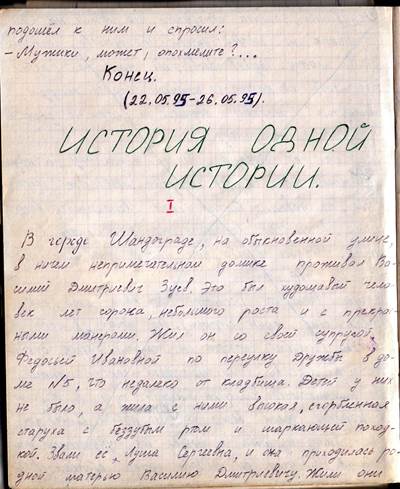 подошёл к ним и спросил:
– Мужики, может, опохмелите?...
Конец.
(22.05.95-26.05.95).
ИСТОРИЯ ОДНОЙ
ИСТОРИИ.
I
В городе Шандограде, на обыкновенной улице,
в ничем непримечательном домике проживал Ва-
силий Дмитриевич Зуев. Это был худомавой чело-
век лет сорока, небольшого роста и с прекрас-
ными манерами. Жил он со своей супругой
Федосьей Ивановной по переулку Дружбы в до-
ме №5, что недалеко от кладбища. Детей у них
не было, а жила с ними высокая, сгорбленная
старуха с беззубым ртом и шаркающей поход-
кой. Звали её Луша Сергеевна, и она приходилась ро-
дной матерью Василию Дмитриевичу. Жили они